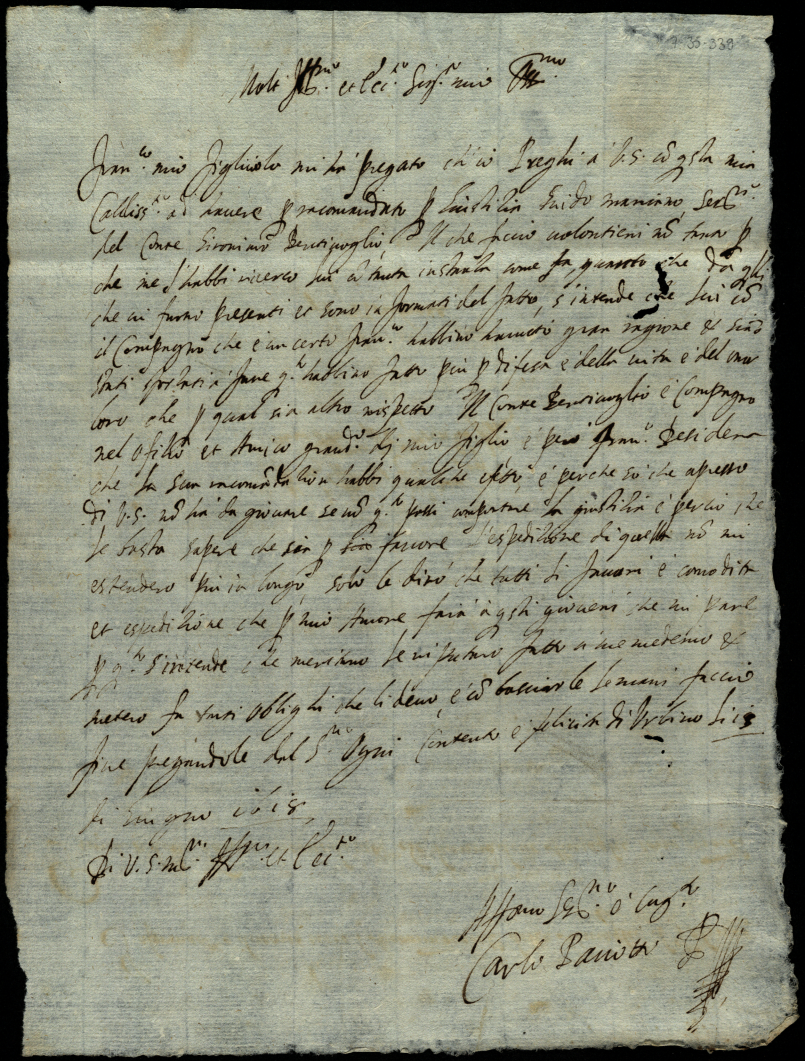 7-35-338
Molt Ill.mo et Ecc.te Sig.r mio
Fran.co mio figliuolo mi ha pregato ch'io Preghi a V.S. cō q.sta mia
ad havere p racomandato p Giustitia Guido
del Conte Gironimo Bentivoglio Il che faccio volontieri nō tanto p
che me l'habbi con tanta instantia come p quanto che da q.lli
che vi furno presenti et sono informati del fatto, s'intende che lui cō
il Compagno che è un certo Fran.co habbino havuto gran ragione et siano
stati a fare q.to habbino fatto più p difesa e della vita e del
loro che p qual sia altro rispetto Il Conte Bentivoglio è Compagno
nel et Amico grand.mo di mio figlio, e però Fran.co Desidera
che la sua racomādation habbi qualche effetto e perche so che apresso
di V.S. nō ha da giovare se nō q.to possi comportare la giustitia e perciò che
le basta sapere che sia p favore l'espeditione di quella nō mi
estendero più in longo solo le dirò che tutti li favori e comodità
et espeditione che p mio Amore farà a q.sti gioveni che mi pare
p q.to s'intende che meritano le riputaro fatto a me medemo et
metero fra tutti oblighi che li devo, e cō basciarle le mani faccio
fine pregandole dal S.re Ogni Contento e felicità di Urbino li 13
di Giugno 1618
Di V.S. m.to Ill.re et Ecc.te
Aff.mo Ser.re
Carlo Paciotto